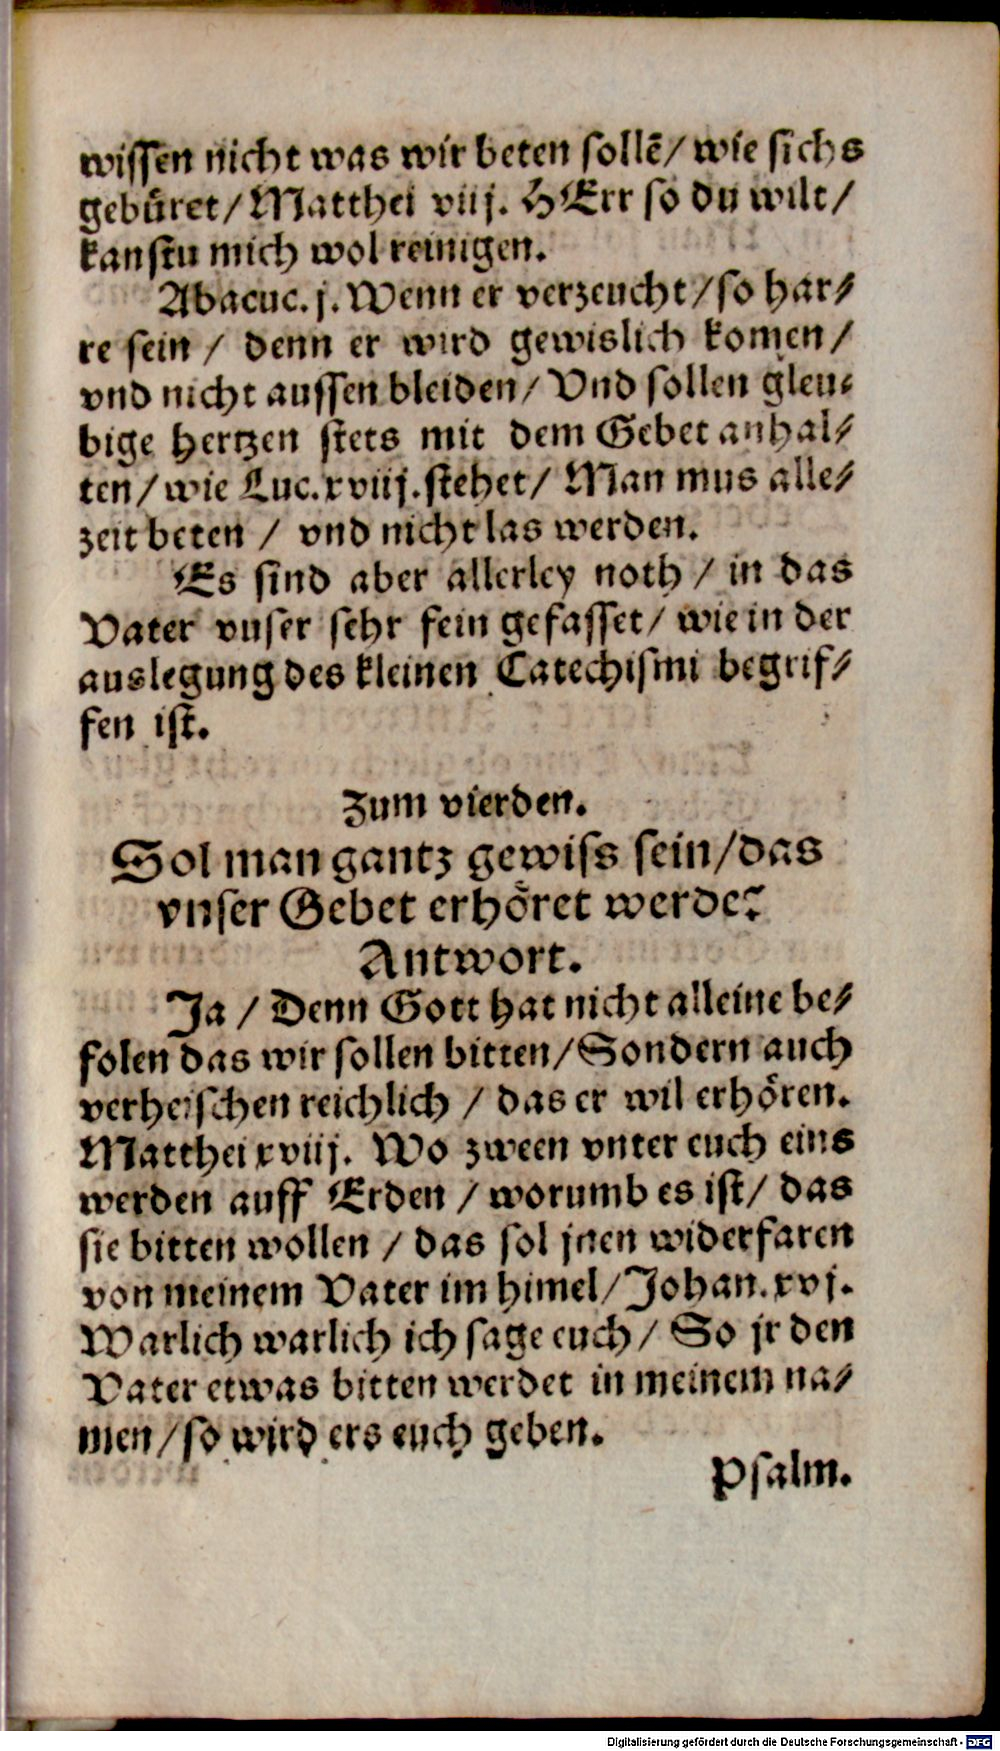 wissen nicht was wir beten sollẽ/ wie sichs
gebüret/ Matthei viij. HErr so du wilt/
kanstu mich wol reinigen.
Abacuc. j. Wenn er verzeucht/ so har-
re sein / denn er wird gewislich komen/
vnd nicht aussen bleiben/ Vnd sollen gleu-
bige hertzen stets mit dem Gebet anhal-
ten/ wie Luc. xviij. stehet/ Man mus alle-
zeit beten / vnd nicht las werden.
Es sind aber allerley noth / in das
Vater vnser sehr fein gefasset/ wie in der
auslegung des kleinen Catechismi begrif-
fen ist.
Zum vierden.
Sol man gantz gewiss sein/das
vnser Gebet erhöret werde?
Antwort.
Ja / Denn Gott hat nicht alleine be-
folen das wir sollen bitten/ Sondern auch
verheischen reichlich / das er wil erhören.
Matthei xviij. Wo zween vnter euch eins
werden auff Erden / worumb es ist/ das
sie bitten wollen / das sol jnen widerfaren
von meinem Vater im himel/ Johan. xvj.
Warlich warlich ich sage euch/ So jr den
Vater etwas bitten werdet in meinem na-
men/ so wird ers euch geben.
Psalm.
Digitalisierung gefördert durch die Deutsche Forschungsgemeinschaft - DFG